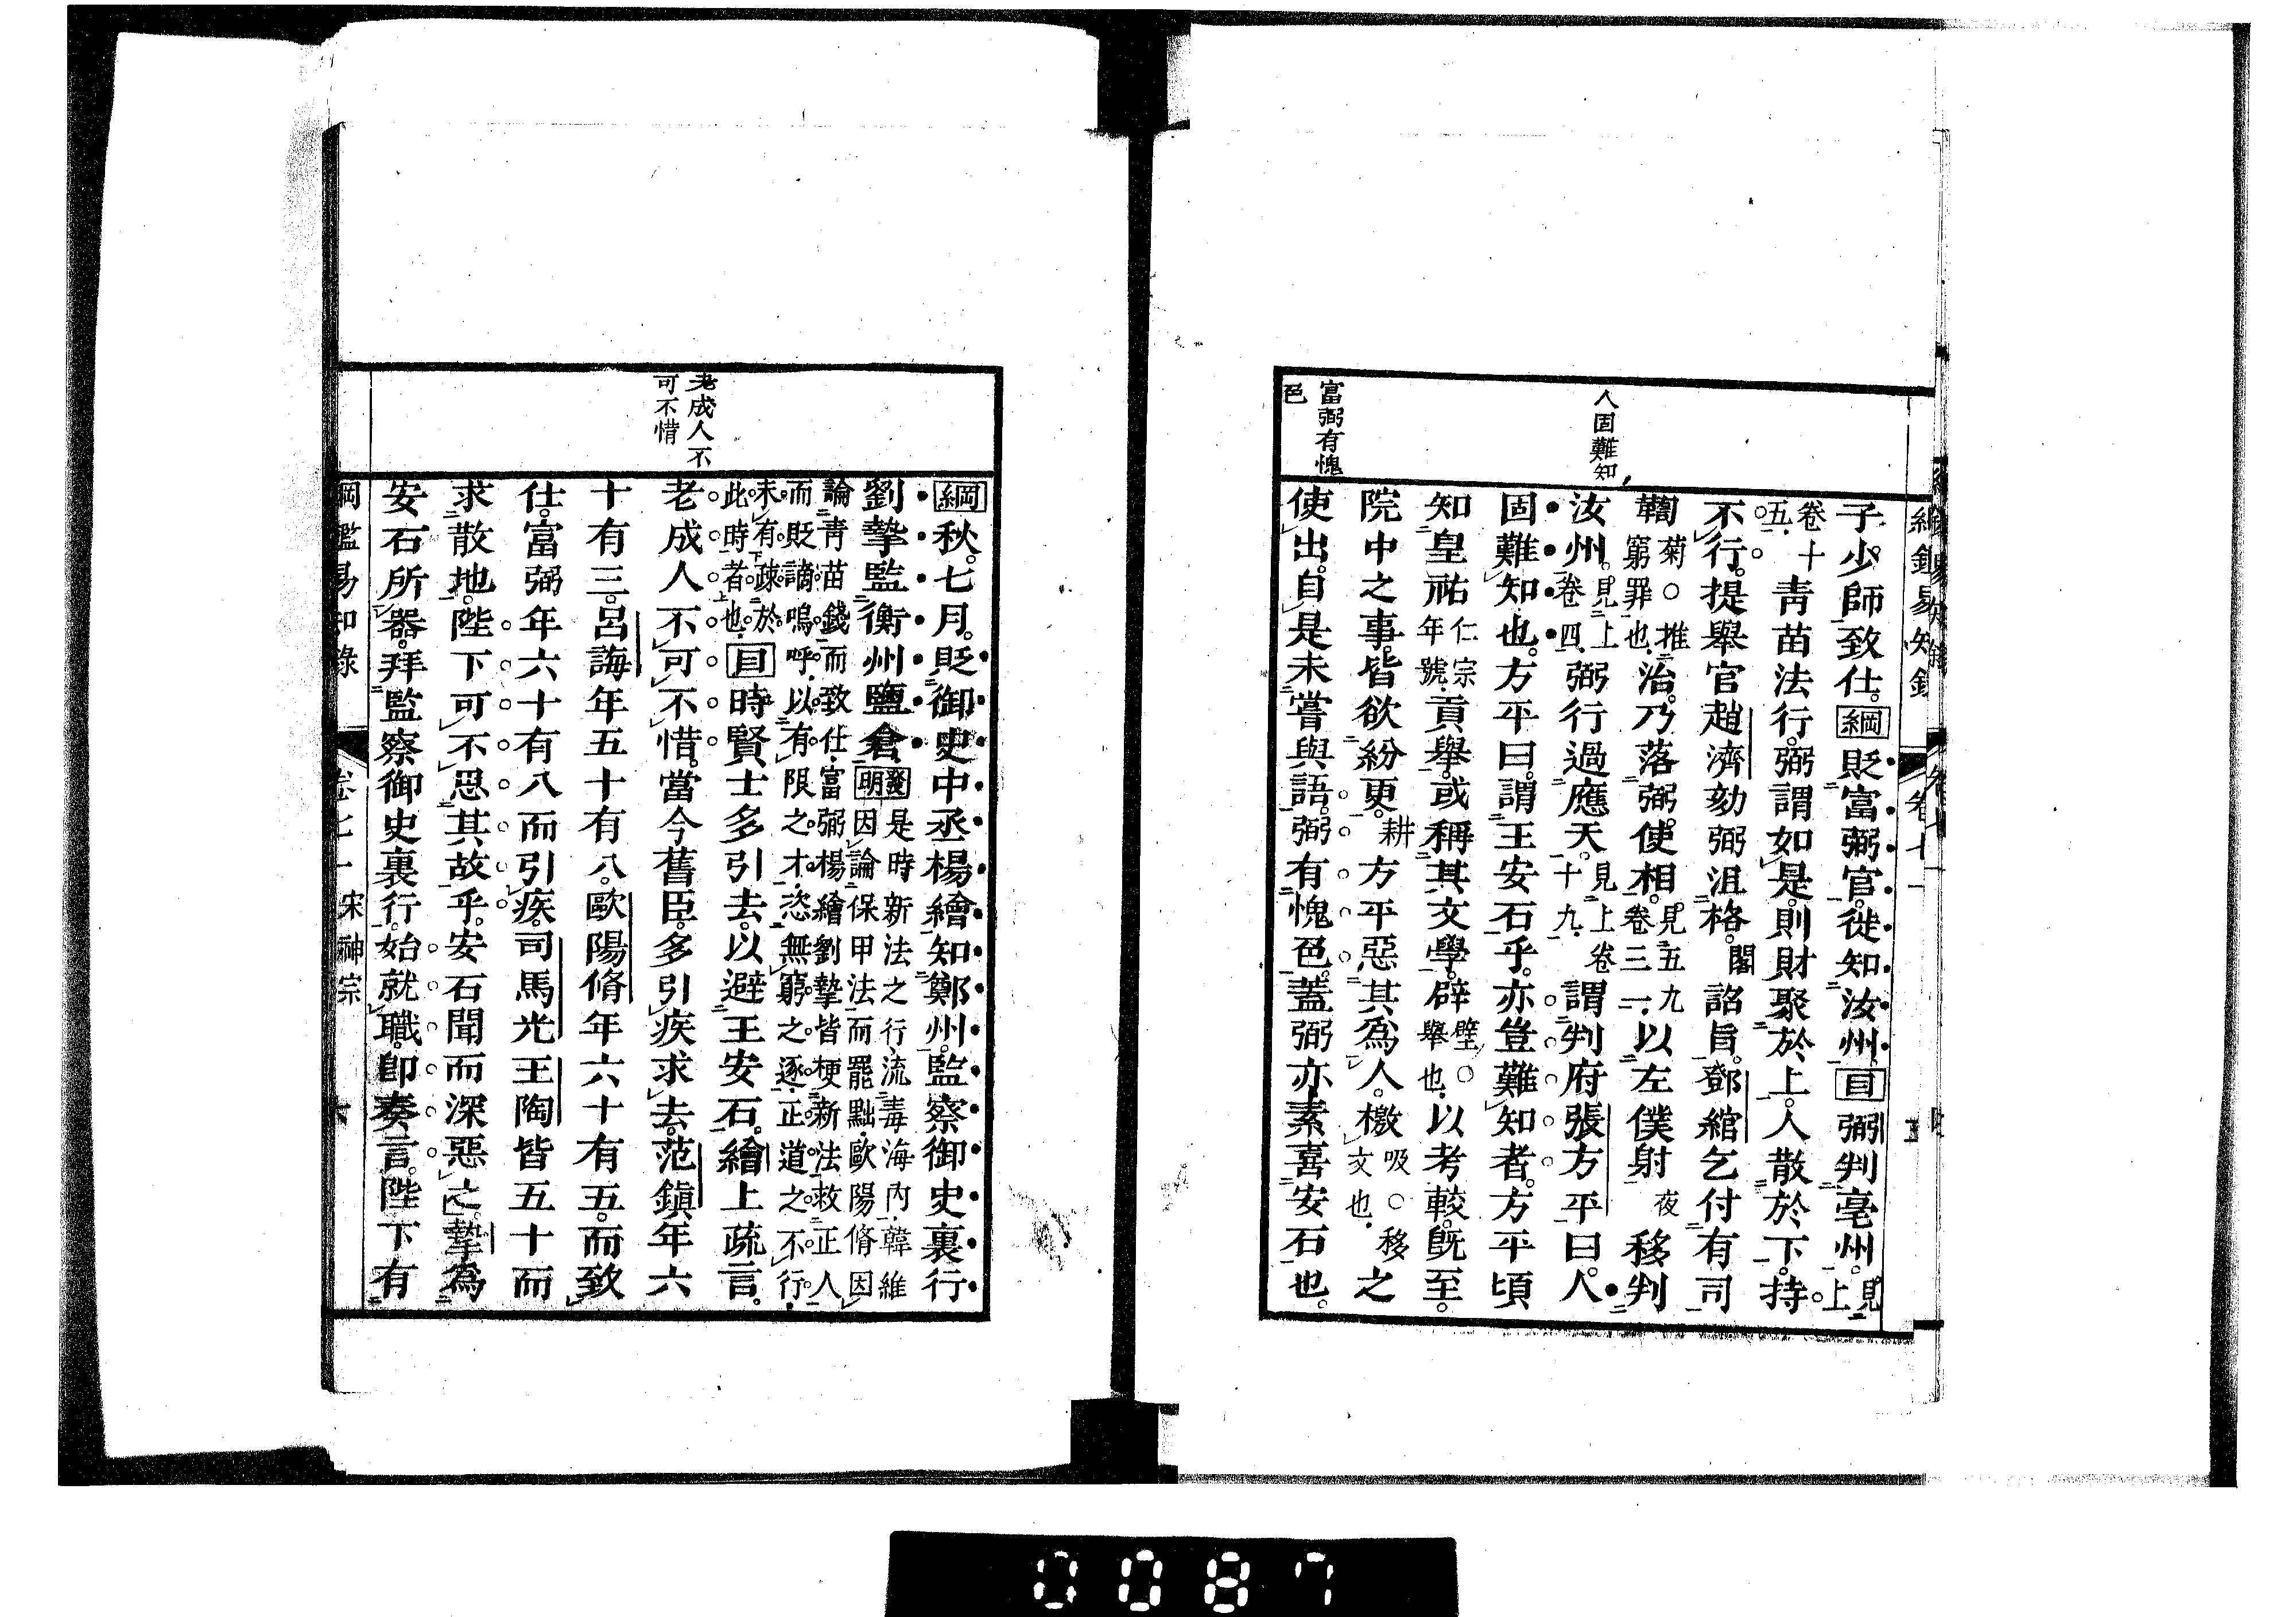 人固難知
富弼有愧
色
子少師致仕。綱貶富弼官。徙知汝州。目弼判亳州。見上
卷十五。青苗法行。弼謂如是。則財聚於上。人散於下。持
不行。提舉官趙濟劾弼沮格。閣詔旨。鄧綰乞付有司
鞫菊○推窮罪也。治。乃落弼使相。見五九卷三一。以左僕射夜移判
汝州。見上卷四。弼行過應天。見上卷十九。謂判府張方平曰。人
固難知也。方平曰。謂王安石乎。亦豈難知者。方平頃
知皇祐仁宗年號。貢舉。或稱其文學。辟壁○舉也。以考較。旣至。
院中之事。皆欲紛更。耕方平惡其爲人。檄吸○移文也。之
使出。自是未嘗與語。弼有愧色。蓋弼亦素喜安石也。
綱鑑易知錄 卷七一 五
老成人不
可不惜
綱秋。七月。貶御史中丞楊繪知鄭州。監察御史裏行
劉摯監衡州鹽倉。發明是時新法之行。流毒海內。韓維因論保甲法而罷黜。歐陽脩因
論青苗錢而致仕。富弼楊繪劉摯皆梗新法救正人
而貶謫。嗚呼。以有限之才。恣無窮之逐。正道之不行。
未有疎於此時者也。目時賢士多引去。以避王安石。繪上疏言。
老成人不可不惜。當今舊臣。多引疾求去。范鎭年六
十有三。呂誨年五十有八。歐陽脩年六十有五。而致
仕。富弼年六十有八而引疾。司馬光王陶皆五十而
求散地。陛下可不思其故乎。安石聞而深惡之。摯爲
安石所器。拜監察御史裏行。始就職。卽奏言。陛下有
綱鑑易知錄 卷七一 宋神宗 六
0087